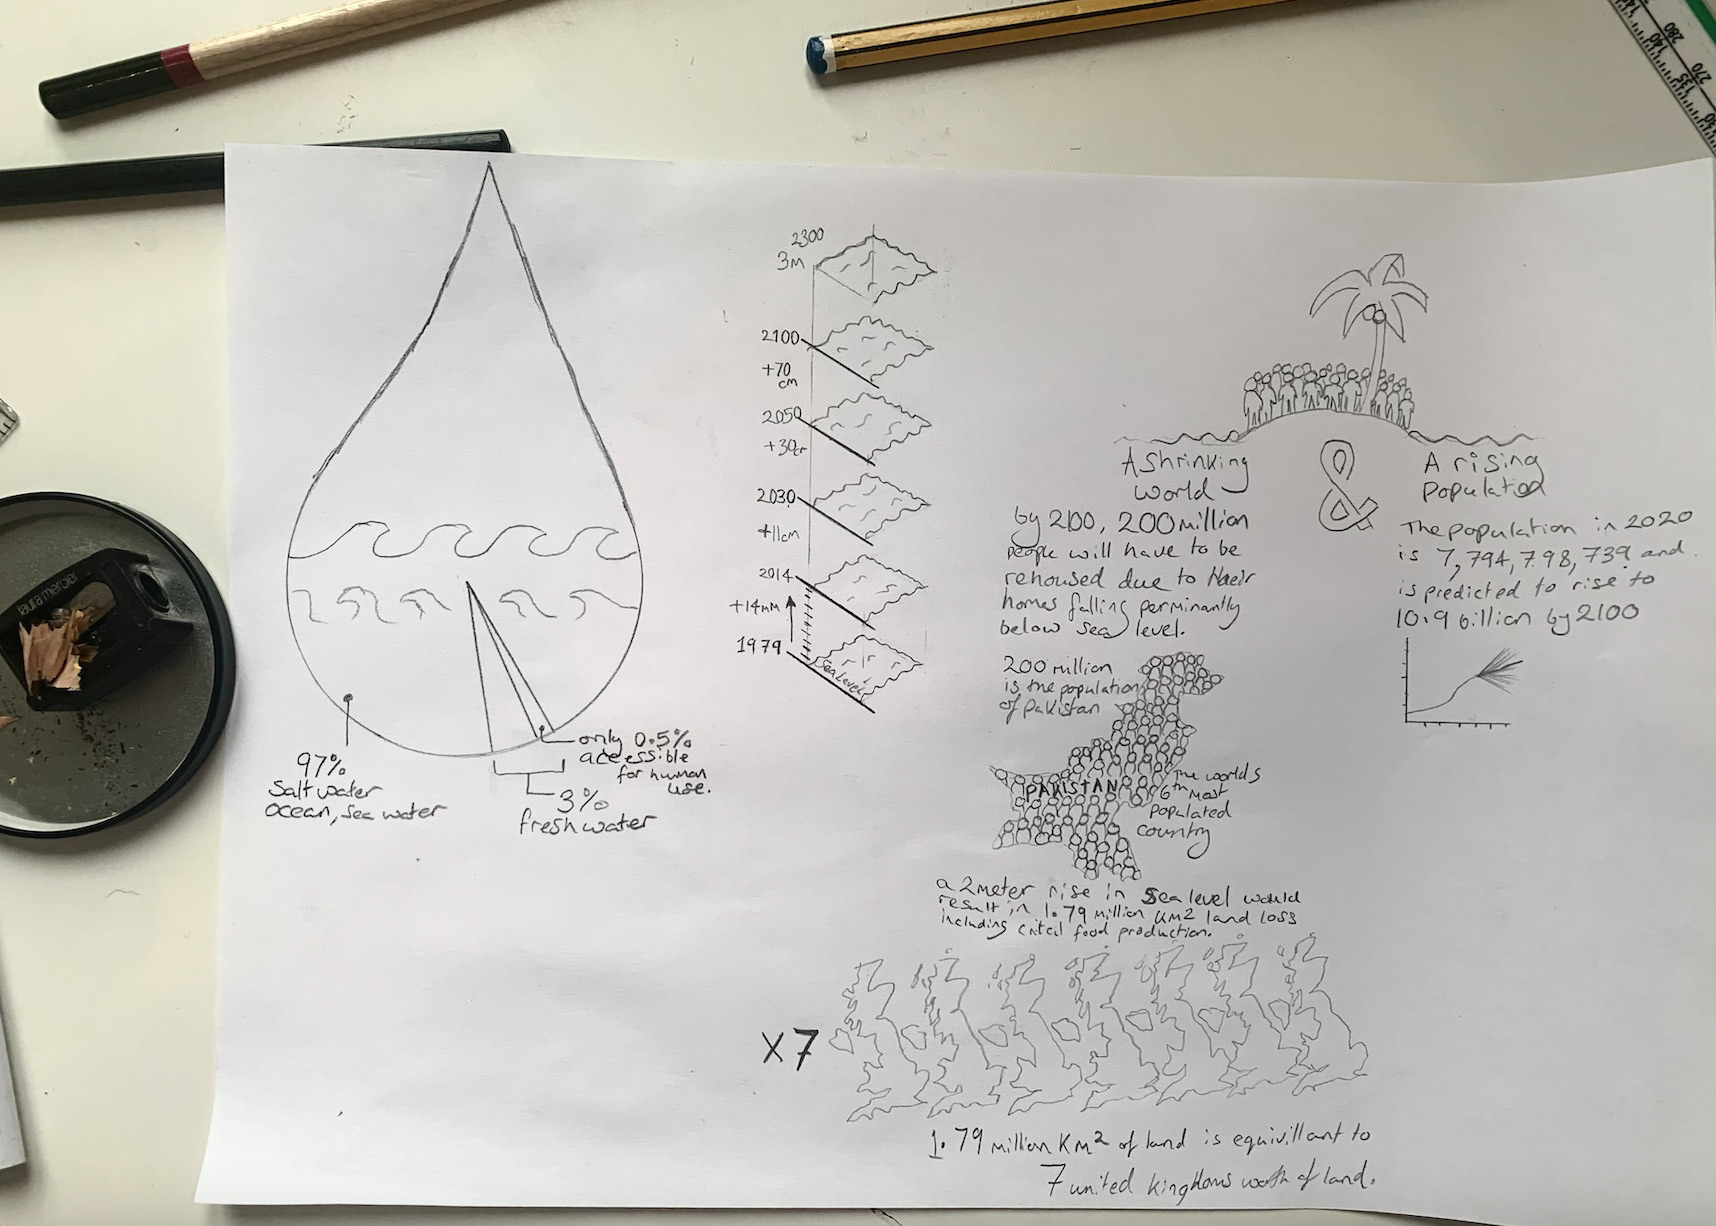 97%
Salt water
ocean, sea water
only 0.5%
accessible
for human
use.
3%
fresh water
2300
3M
2100
+70
cm
2050
+30cm
2030
+11cm
2014
+14mm
1979
Sea level
A Shrinking
world
&
A rising
population
by 2100, 200 million
people will have to be
rehoused due to their
homes falling perminantly
below sea level.
The population in 2020
is 7,794,798,739 and
is predicted to rise to
10.9 billion by 2100
200 million
is the population
of Pakistan
PAKISTAN
The worlds
6th most
populated
country
a 2 meter rise in sea level would
result in 1.79 million KM2 land loss
including critcal food production.
X7
1.79 million KM2 of land is equivillant to
7 united kingdoms worth of land.
laura mercier
280
140
270
135